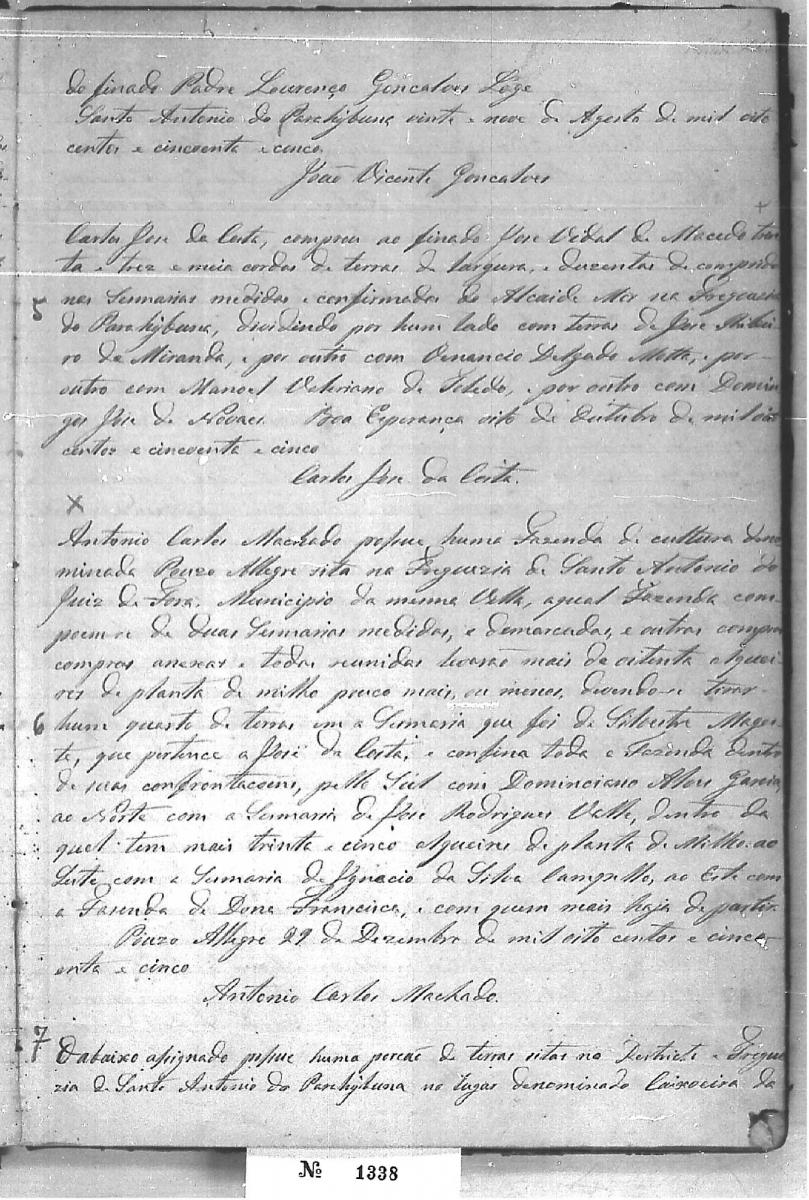 do finado Padre Lourenço Goncalves Lage
Santo Antonio do Parahybuna vinte e nove de Agosto de mil oito
centos e cincoenta e cinco
João Vicente Goncalves
+
Carlos Jose da Costa, comprou ao finado Jose Vidal de Macedo trin
ta e trez e meia cordas de terras de largura, e duzentas de comprido
5 nas Sesmarias medidas e confirmadas do Alcaide Mor na Freguezia
do Parahybuna, dividindo por hum lado com terras de Jose Ribei
ro de Miranda, e por outro com Venancio Delgado Motta, e por
outro com Manoel Valeriano de Toledo, e por outro com Domin
gos Jose de Novaes Boa Esperança oito de Outubro de mil oito
centos e cincoenta e cinco
Carlos Jose da Costa.
X
Antonio Carlos Machado possue huma Fazenda de cultura deno
minada Pouzo Allegre sita na Freguezia de Santo Antonio do
Juiz de Fora, Municipio da mesma Villa, a qual Fazenda com
poem-se de duas Sesmarias medidas, e demarcadas, e outras compras
compras anexas e todas reunidas levarão mais de oitenta alquei
res de planta de milho pouco mais, ou menos, devendo-se tirar
6 hum quarto de terras em a Sesmaria que foi de Silvestre
te, que pertence a José da Costa, e confina toda a Fazenda dentro
de suas confrontacoens, pello Sul com Dominciano Alves Garcia,
ao Norte com a Sesmaria de Jose Rodrigues Valle, dentro da
qual tem mais trinta e cinco alqueires de planta de Milho. ao
Leste com a Sesmaria de Ignacio da Silva Campello, ao Este com
a Fasenda de Dona Francisca, e com quem mais haja de partir
Pouzo Allegre 29 de Dezembro de mil oito centos e cinco
enta e cinco
Antonio Carlos Machado.
7 O abaixo assignado possue huma porcaõ de terras sitas no Destricto e Fregue
zia de Santo Antonio do Parahybuna no lugar denominado Caixoeira da
Nº 1338